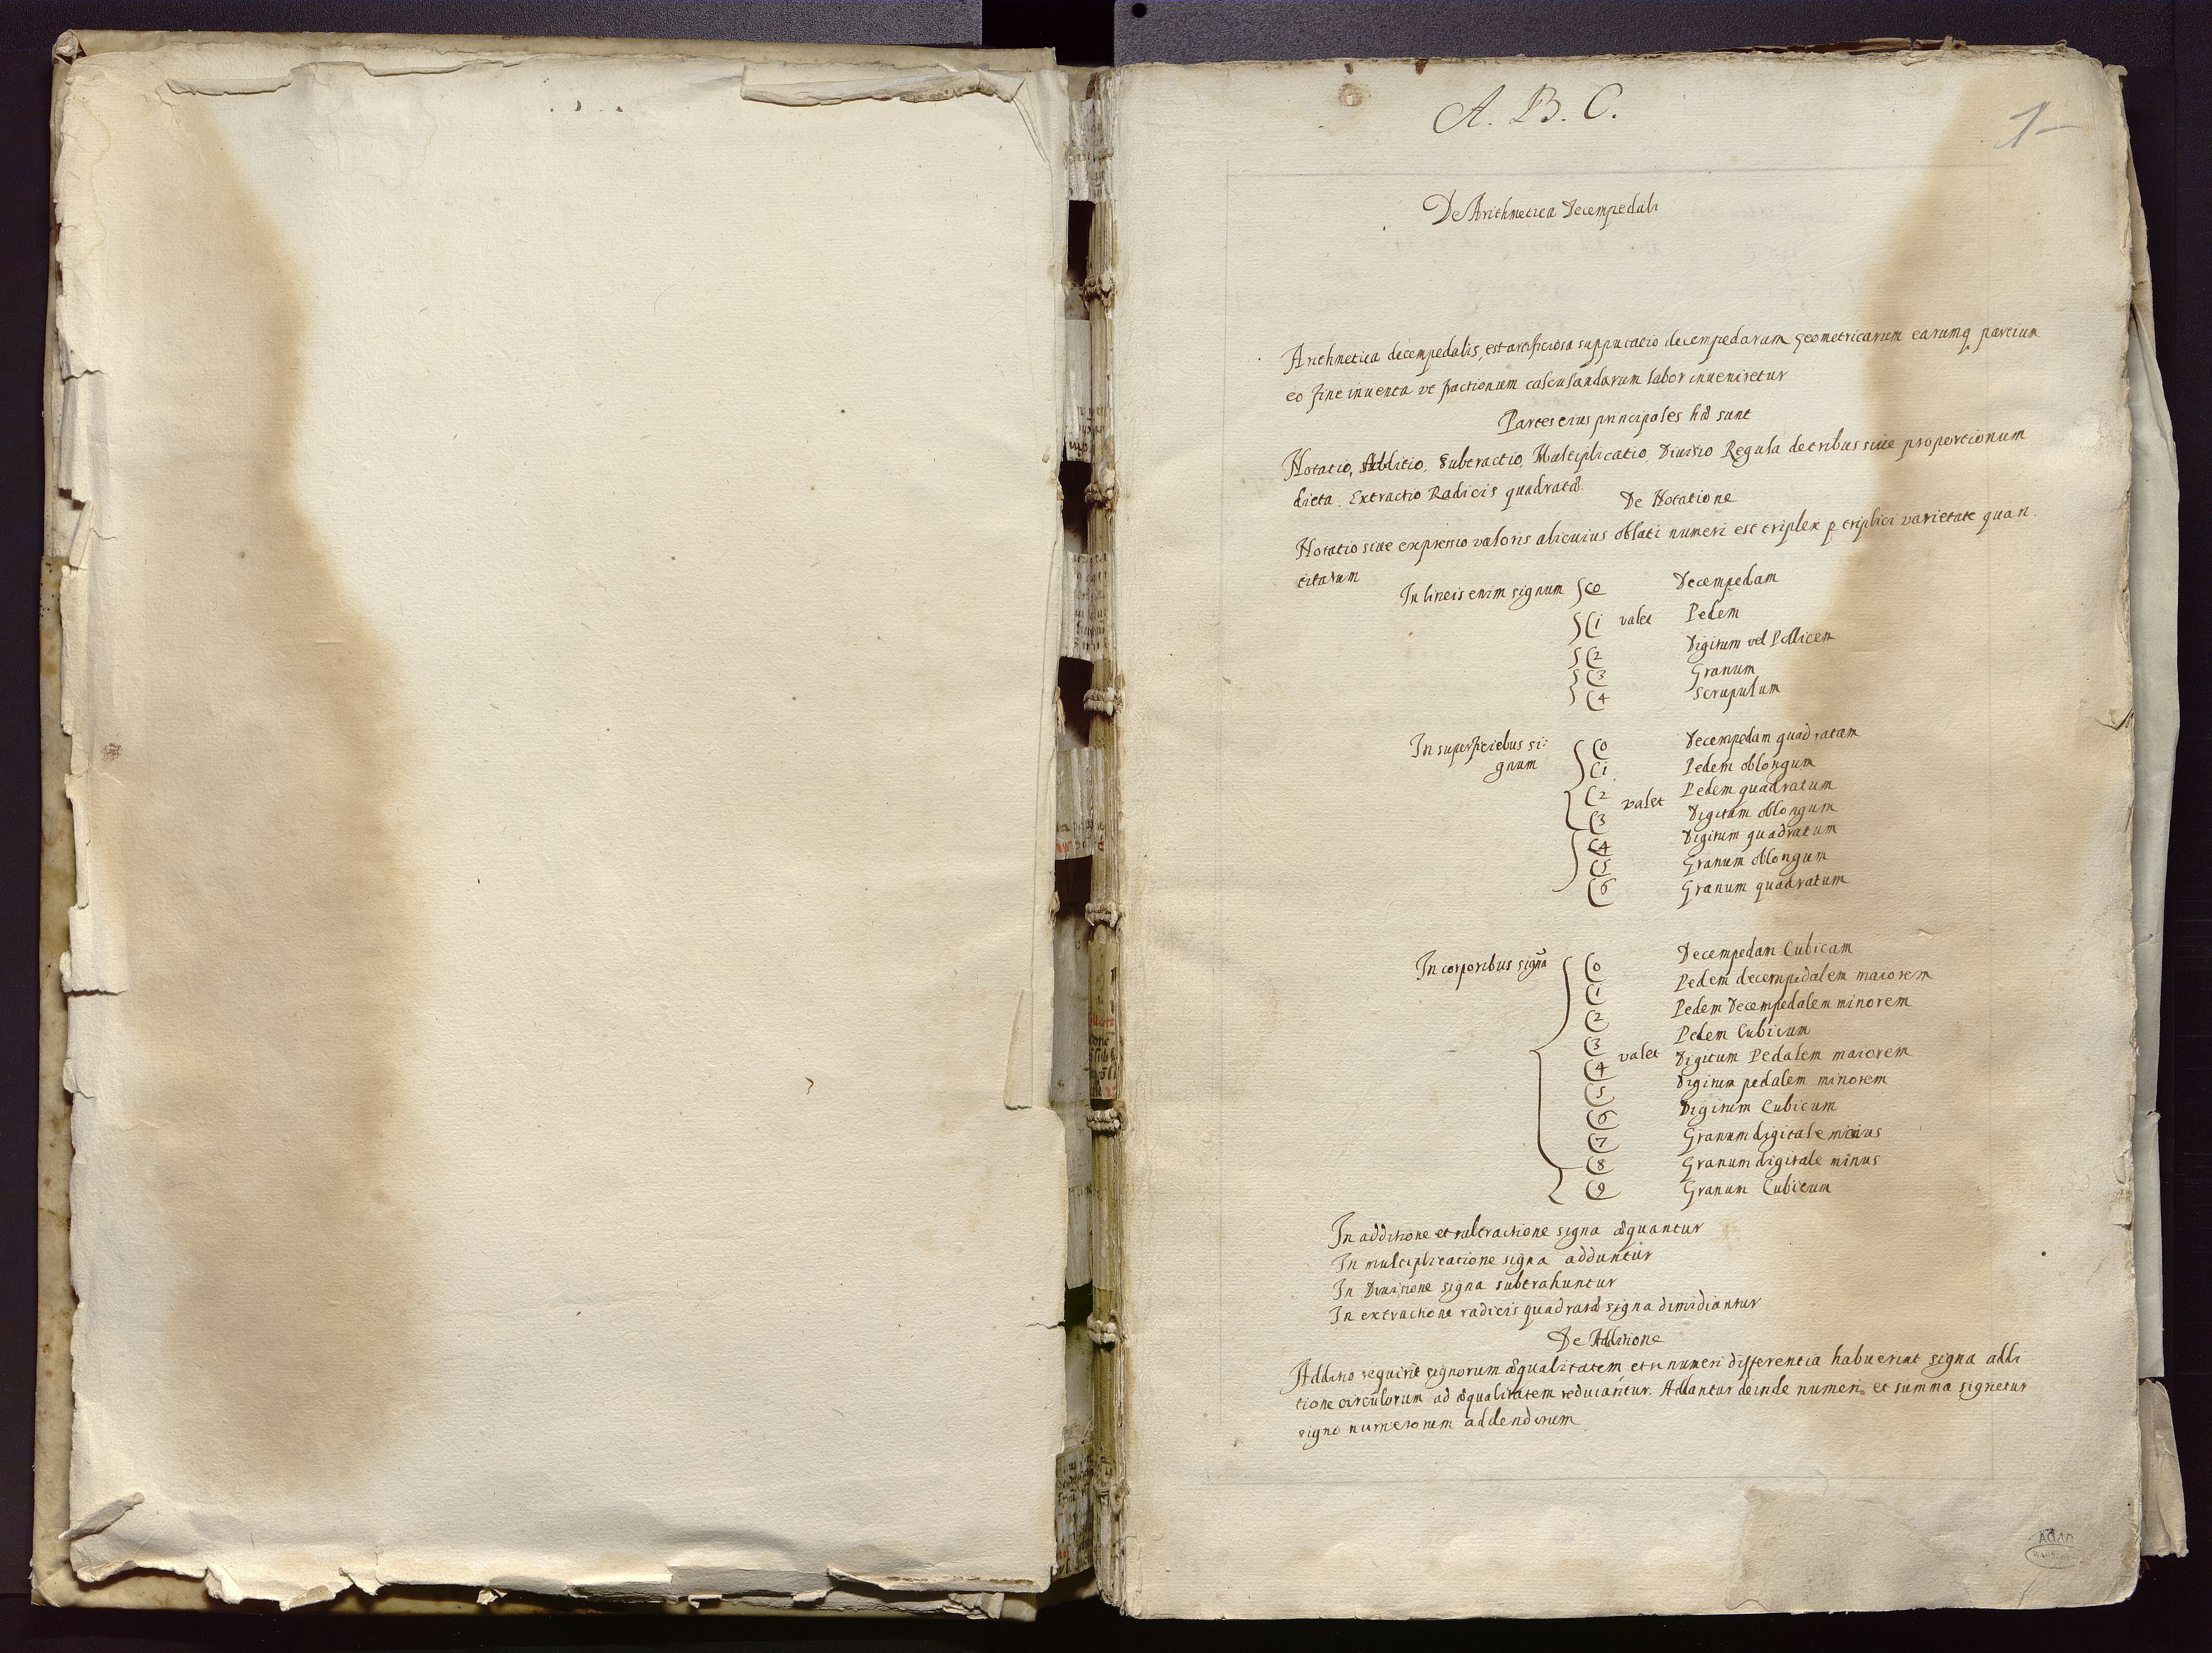 A. B. C.
1
De Arithmetica Decempedali
Arithmetica decempedalis, est artificiosa supputatio decempedarum geometricarum earumq partium
eo fine inuenta ut fractionum calculandarum labor inueniretur
Partes eius principales hæ sunt
Notatio, Additio, Subtractio, Multiplicatio, Diuisio Regula de tribus siue proportionum
dicta. Extractio Radicis quadratæ.
De Notatione
Notatio siue expressio valoris alicuius oblati numeri est triplex p triplici varietate quan.
titatum
In lineis enim signum (0 Decempedam
(1 valet Pedem
(2 Digitum vel Pollicem
(3 Granum
(4 Scrupulum
In superficiebus si: (0 Decempedam quadratam
gnum (1 Pedem oblongum
(2 valet Pedem quadratum
(3 Digitum oblongum
(4 Digitum quadratum
(5 Granum oblongum
(6 Granum quadratum
In corporibus signū (0 Decempedam Cubicam
(1 Pedem decempedalem maiorem
(2 Pedem Decempedalem minorem
(3 valet Pedem Cubicum
(4 Digitum Pedalem maiorem
(5 Digitum pedalem minorem
(6 Digitum Cubicum
(7 Granum digitale maius
(8 Granum digitale minus
(9 Granum Cubicum
In additione et subtractione signa æquantur
In multiplicatione signa adduntur
In Diuisione signa subtrahuntur
In extractione radicis quadratæ signa dimidiantur
De Additione
Additio requirit signorum æqualitatem et si numeri differentia habuerint signa addi
tione circulorum ad æqualitatem reducantur. Addantur deinde numeri et summa signetur
signo numerorum addendorum
AGAD